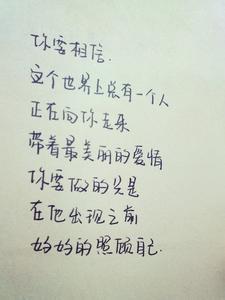 你要相信.
这个世界上总有一个人
正在向你走来
带着最美丽的爱情
你要做的只是
在他出现之前
好好的照顾自己.